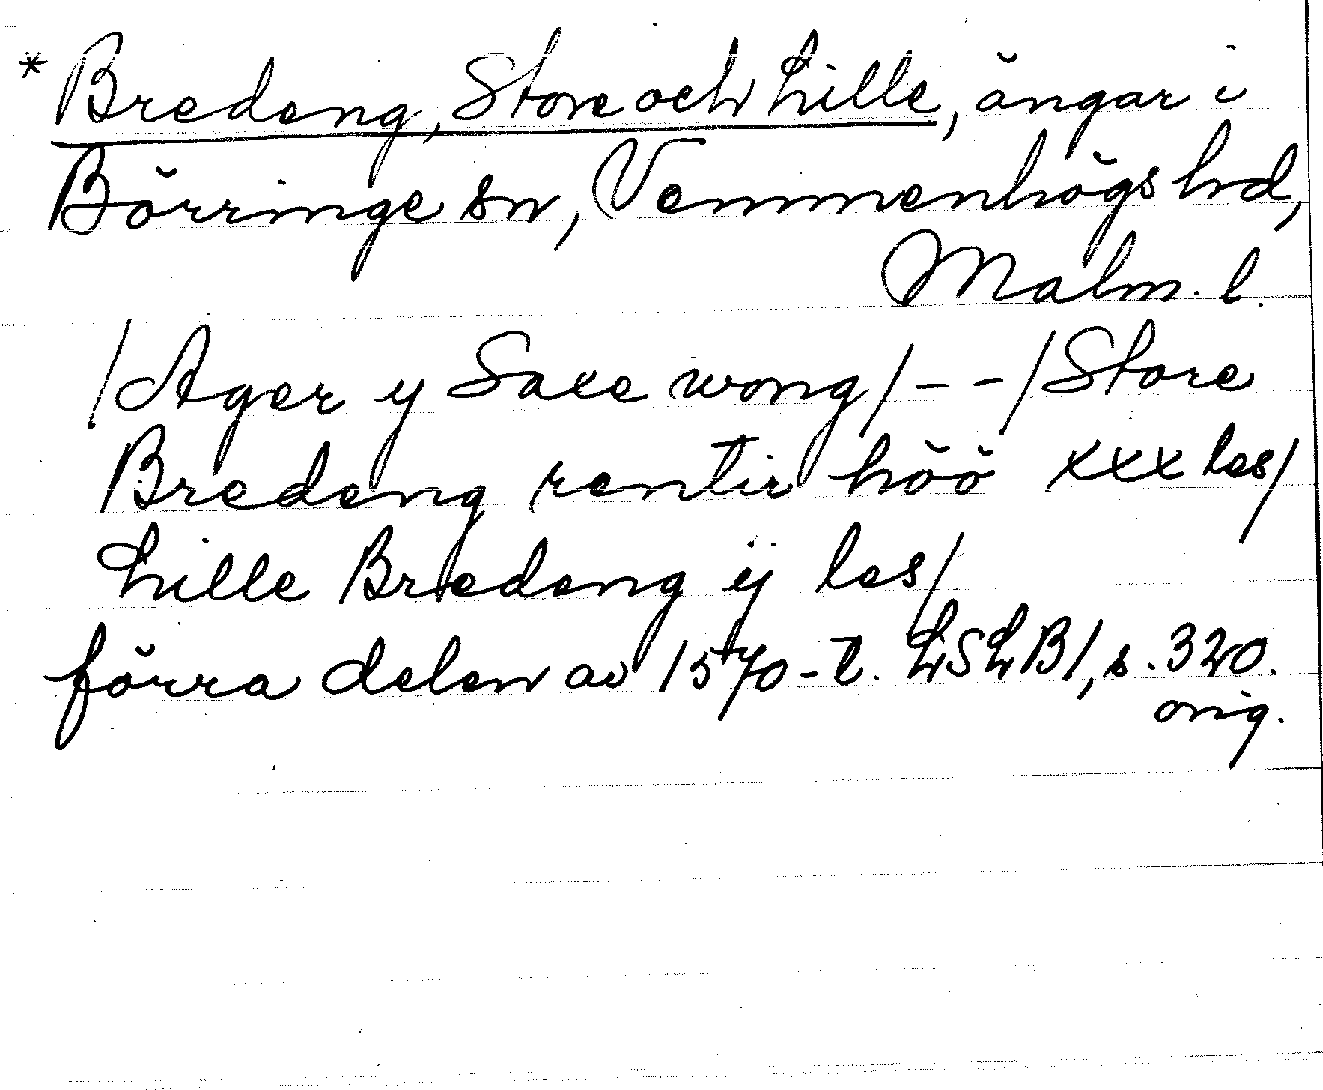 * Bredeng, Store och Lille, ängar i
Börringe sn, Vemmenhögs hd,
Malm. l.
/Ager y Saxe wong/ - - /Store
Bredeng rentir höö xxx les/
Lille Bredeng ij les/
förra delen av 1570-t. LSLB1, s. 320.
orig.